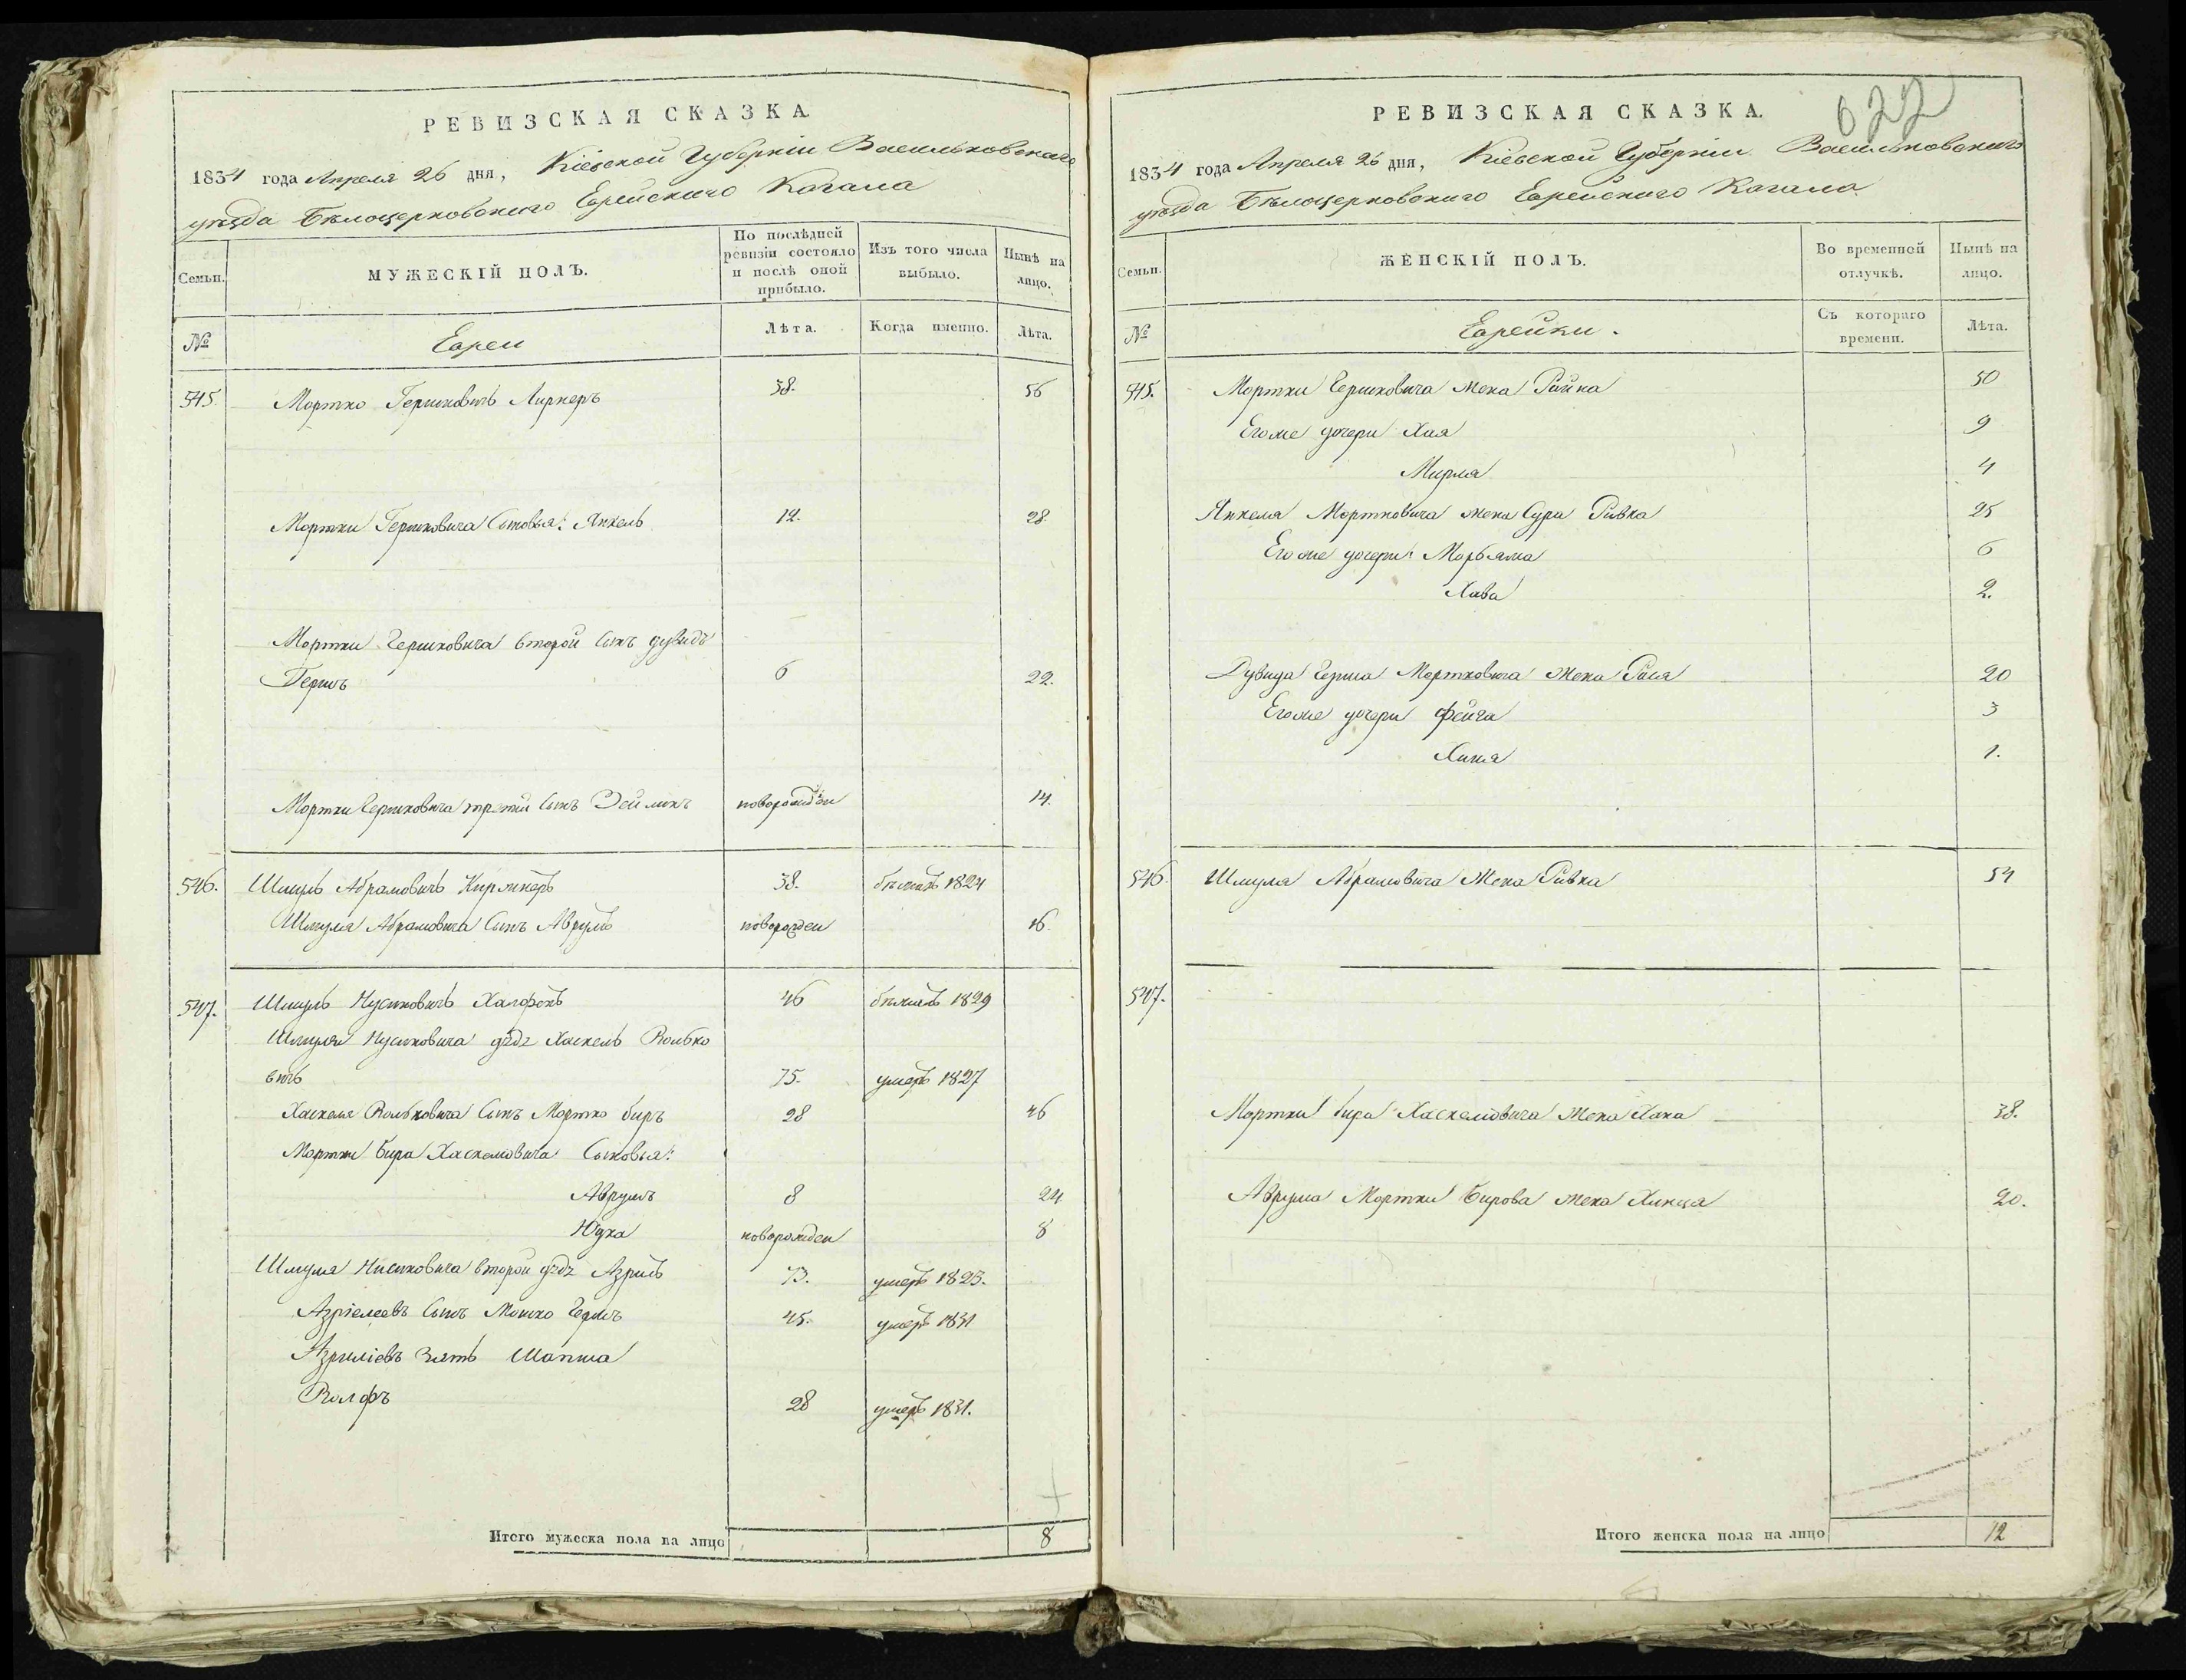 РЕВИЗСКАЯ СКАЗКА
1834 года Апреля 26 дня, Кіевской Губерніи Васильковскаго
уѣзда Бѣлоцерковскаго Еврейскаго Кагала
Семьи.
МУЖЕСКІЙ ПОЛЪ.
По послѣдней ревизіи состояло и послѣ оной прибыло.
Изъ того числа выбыло.
Нынѣ на лицо.
№
Евреи
Лѣта.
Когда именно.
Лѣта.
545. Мортко Гершковичъ Лирнеръ 38. 56
Мортки Гершковича Сыновья: Янкель 12. 28
Мортки Гершковича второй сынъ Дувидъ
Гершъ 6 22.
Мортки Гершковича третій сынъ Зейликъ новорожден 14.
546. Шмуль Абрамовичъ Киржнеръ 38. бѣжалъ 1824
Шмуля Абрамовича Сынъ Аврумъ новорожден 16.
547. Шмуль Нусиновичъ Халфонъ 46 бѣжалъ 1829
Шмуля Нусиновича дѣдъ Хаскель Волько
вичъ 75. умеръ 1827
Хаскеля Вольковича Сынъ Мортко Биръ 28 46
Мортки Бира Хаскелевича Сыновья:
Аврумъ 8 24.
Юдка новорожден 8
Шмуля Нисиновича второй дѣдъ Азриль 73. умеръ 1823.
Азріелевъ Сынъ Мошко Гершъ 45. умеръ 1831
Азриліевъ Зять Шапша
Волфъ 28 умеръ 1831.
Итого мужеска пола на лицо 8
622
РЕВИЗСКАЯ СКАЗКА.
1834 года Апреля 26 дня, Кіевской Губерніи Васильковскаго
уѣзда Бѣлоцерковскаго Еврейскаго Кагала
Семьи.
ЖЕНСКІЙ ПОЛЪ.
Во временной отлучкѣ.
Нынѣ на лицо.
№
Еврейки.
Съ котораго времени.
Лѣта.
545. Мортки Гершковича жена Райна 50
Егоже дочери Хая 9
Мирля 4
Янкеля Мортковича жена Сура Ривка 25
Егоже дочери: Марьяма 6
Хава 2.
Дувида Герша Мортковича жена Рася 20
Егоже дочери Фейга 3
Хина 1.
546. Шмуля Абрамовича Жена Ривка 54
547.
Мортки Бира Хаскелевича жена Хана 38.
Аврума Мортки Бирова жена Хинца 20.
Итого женска пола на лицо 12